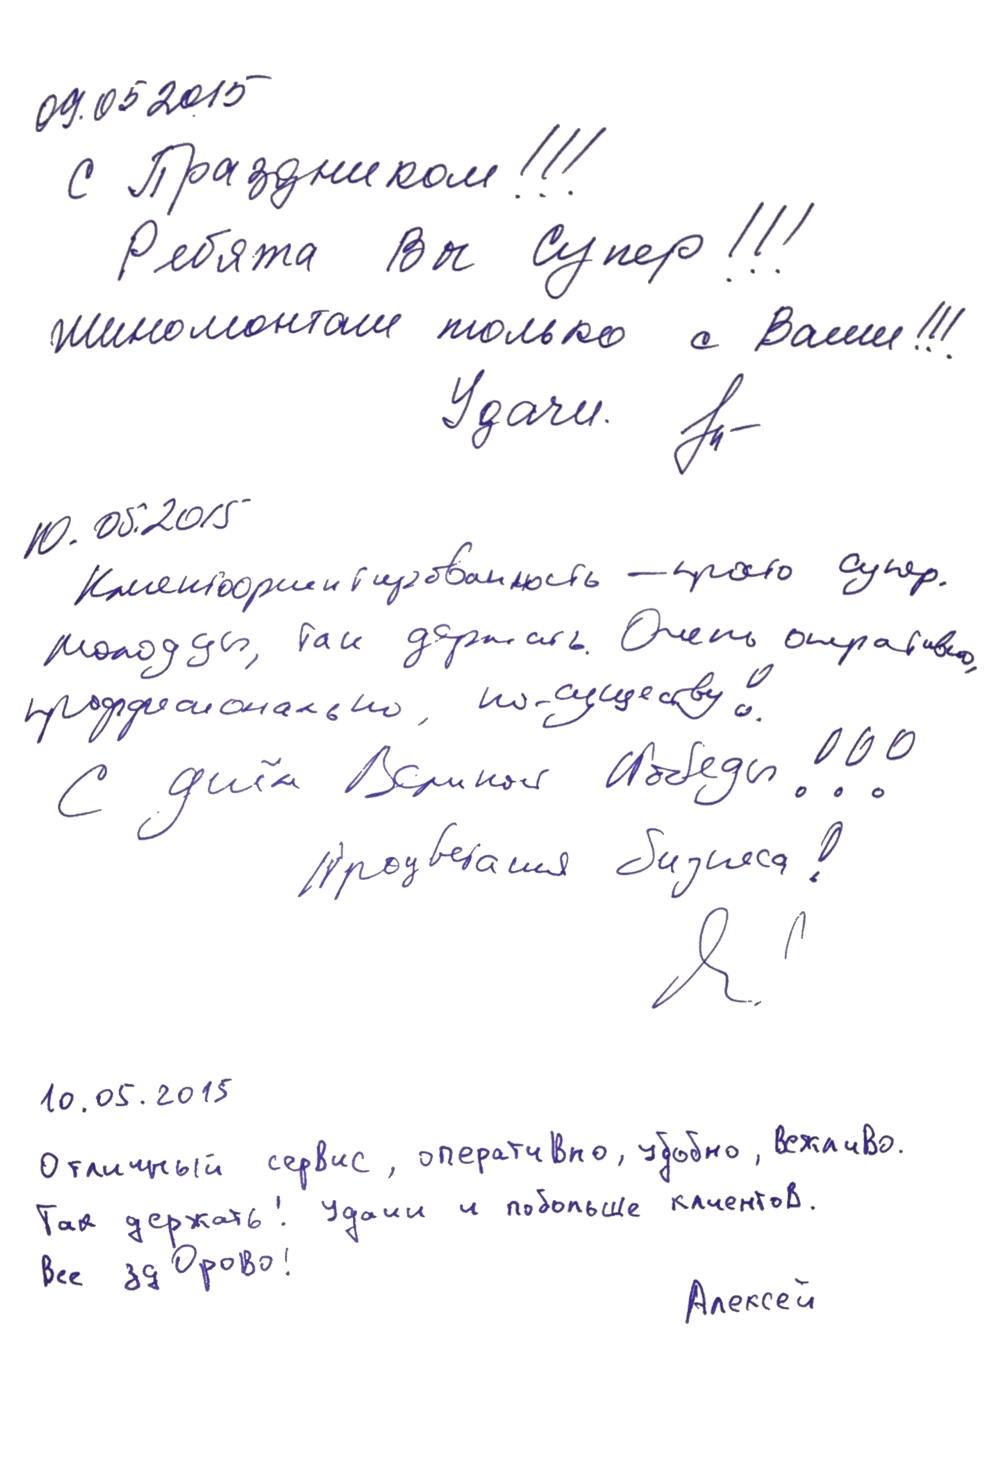 09.05 2015
С Праздником!!!
Ребята Вы Супер!!!
Шиномонтаж только с Вами!!!
Удачи.
10.05.2015
Клиентоориентированность – просто супер.
Молодцы, так держать. Очень оперативно,
профессионально, по-существу!
С днём Великой Победы!!!
Процветания бизнеса!
10.05.2015
Отличный сервис, оперативно, удобно, вежливо.
Так держать! Удачи и побольше клиентов.
Все здОрово!
Алексей